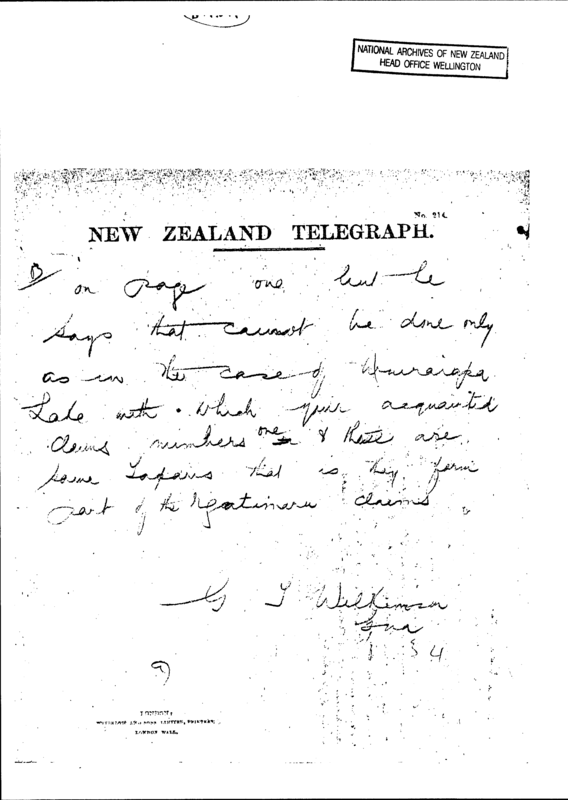 NATIONAL ARCHIVES OF NEW ZEALAND
HEAD OFFICE WELLINGTON
No. 214.
NEW ZEALAND TELEGRAPH.
on page one but he
says that cannot be done only
as in the case of Wairarapa
Lake with which your acquainted
Claims numbers one & these are
same that is they form
part of the Ngatimaru claims
G T Wilkinson
9)
LONDON:
WATERLOW AND SONS LIMITED, PRINTERS,
LONDON WALL.